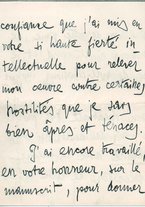 confiance que j'ai mis en
votre si haute fierté in
tellectuelle pour relever
mon œuvre contre certaines
hostilités que je sais
bien âpres et ténaces.
J'ai encore travaillé,
en votre honneur, sur le
manuscrit, pour donner